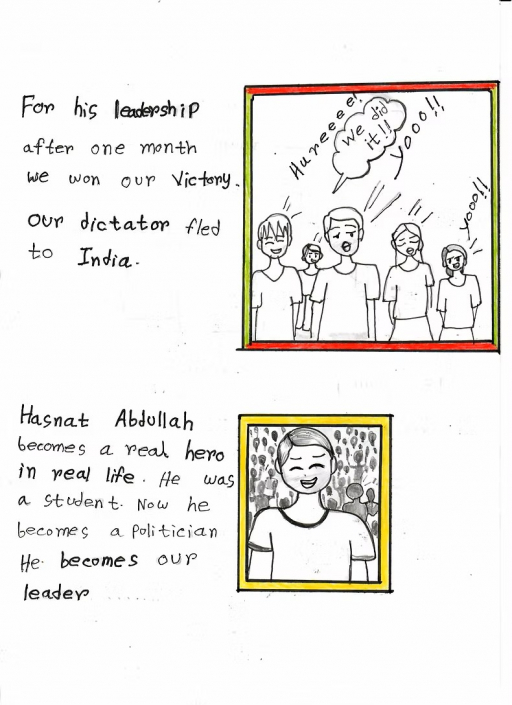 For his leadership
after one month
we won our Victory.
our dictator fled
to India.
Hureeee!
We did
it!!
Yooo!!
Yooo!!
Hasnat Abdullah
becomes a real hero
in real life. He was
a student. Now he
becomes a politician
He becomes our
leader ......